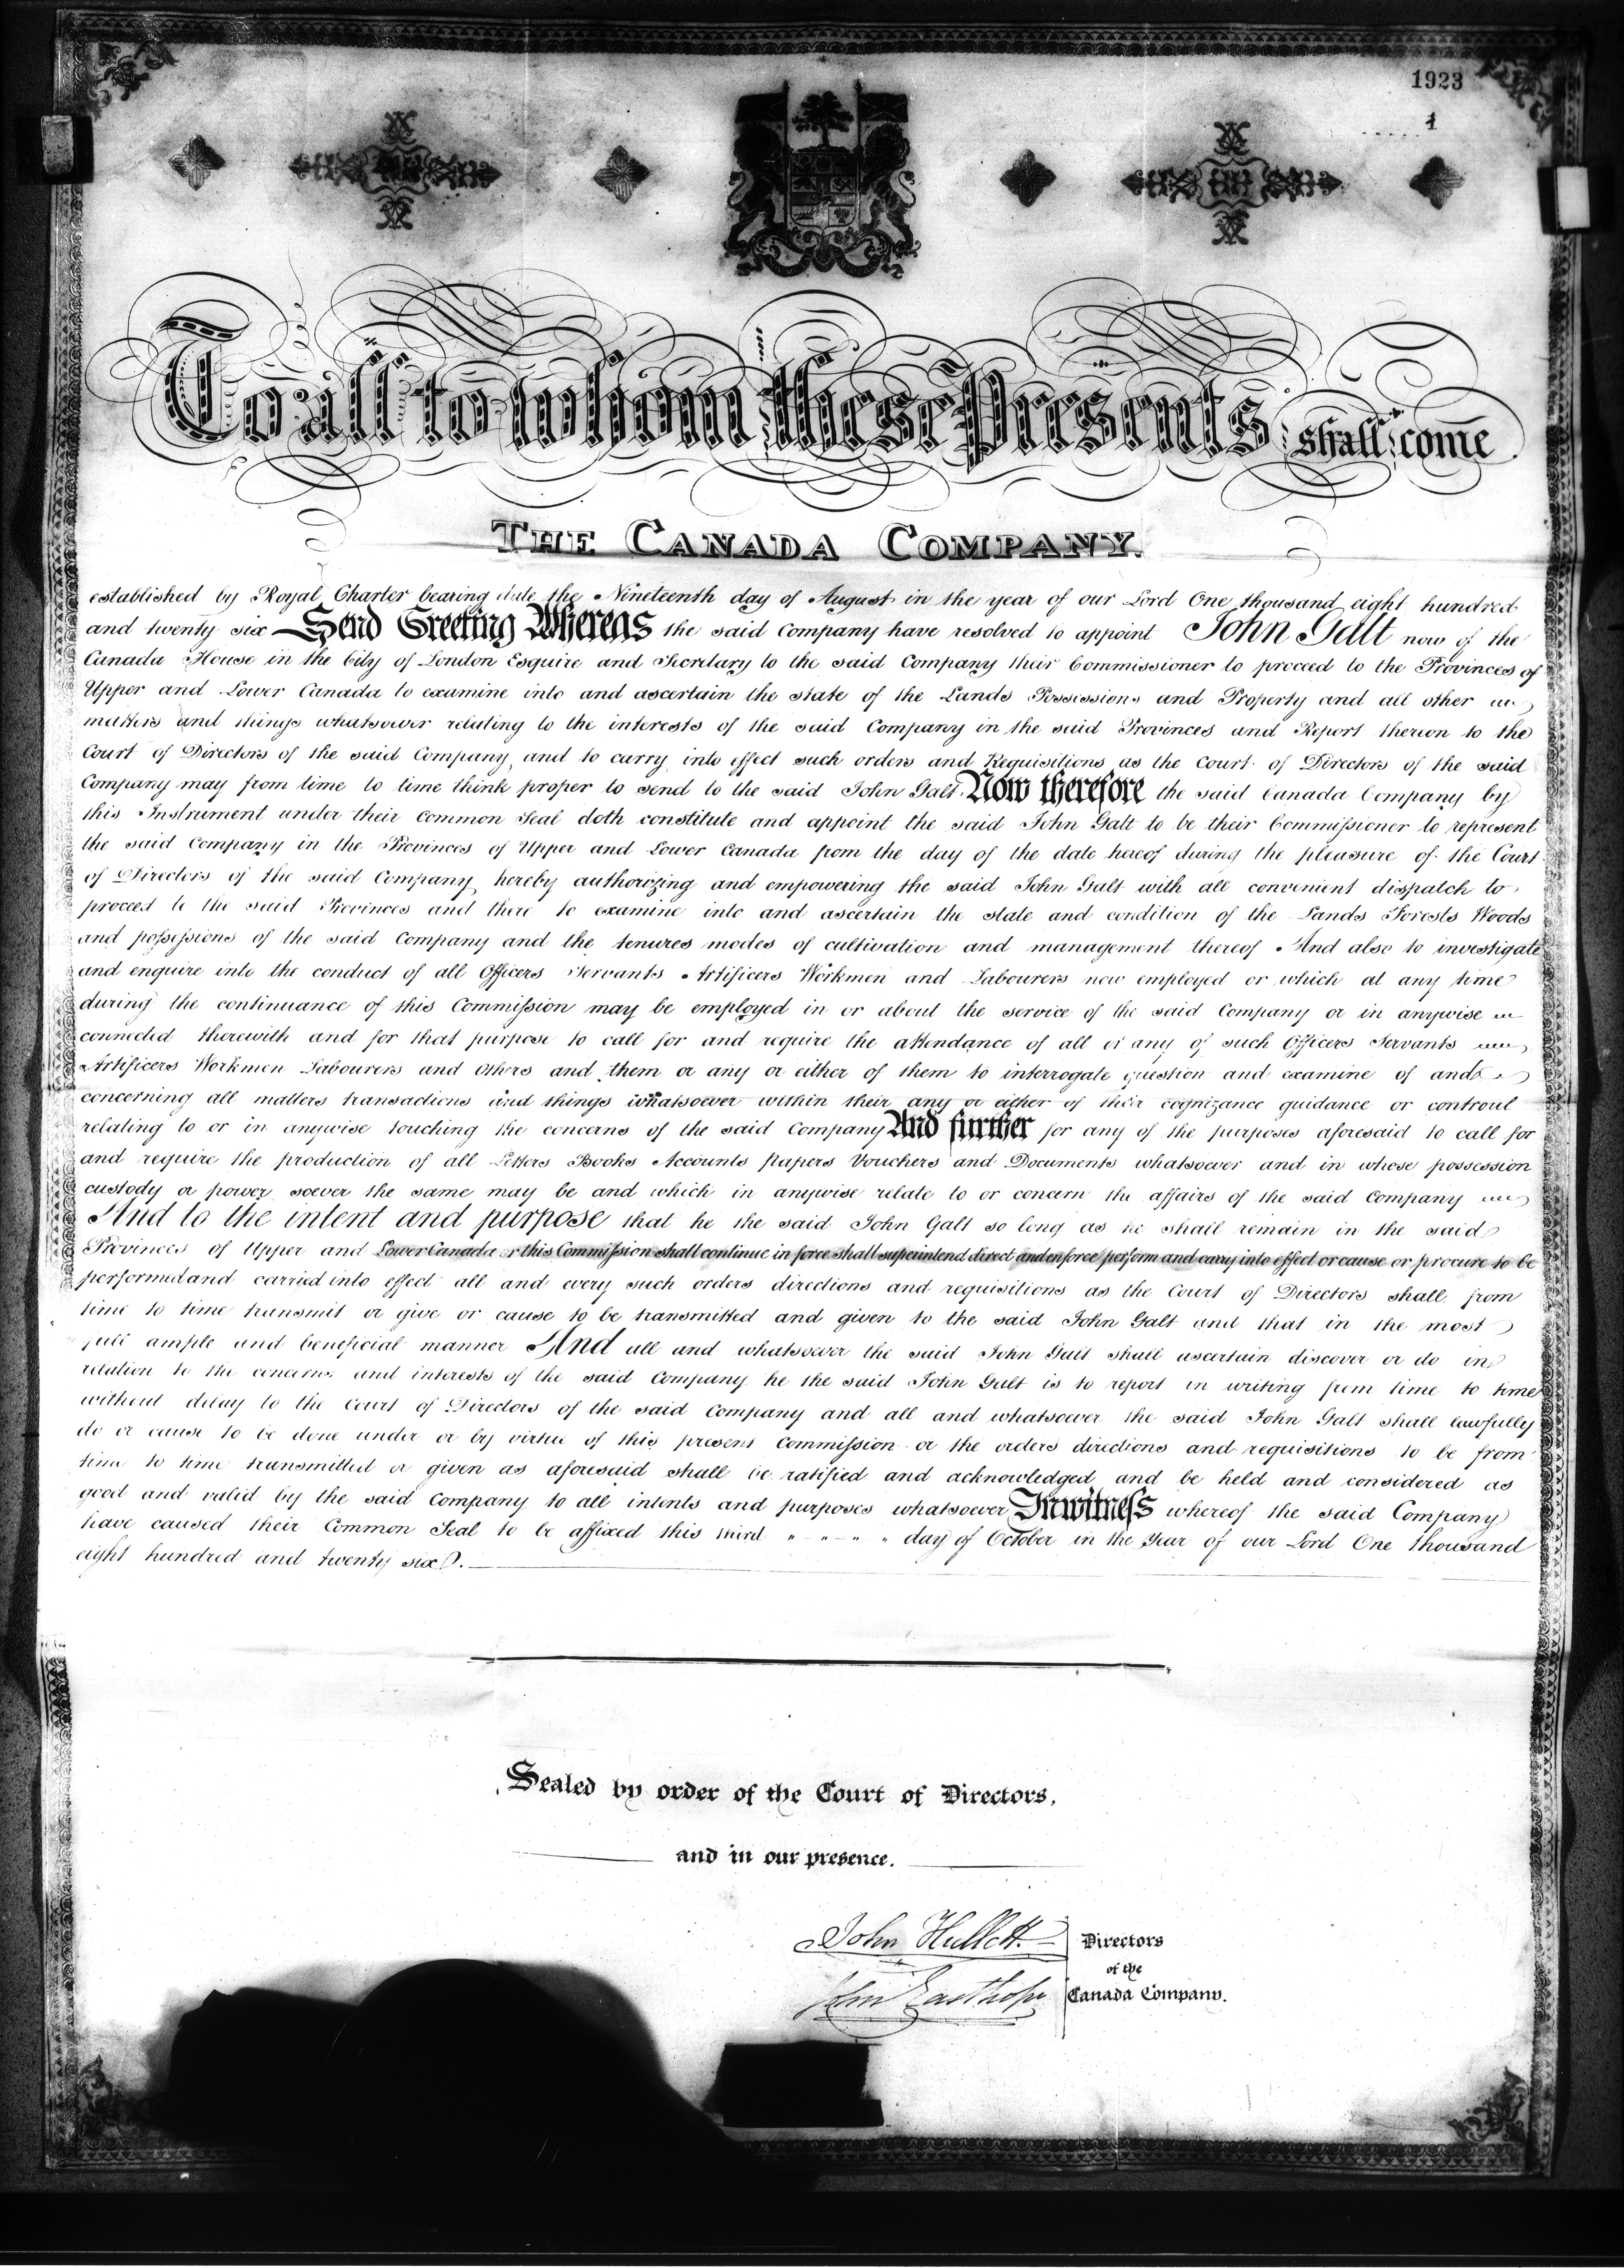 1923
1
To all to whom these Presents shall come
THE CANADA COMPANY.
established by Royal Charter bearing date the Nineteenth day of August in the year of our Lord One thousand eight hundred
and twenty six Send Greeting Whereas the said Company have resolved to appoint John Galt now of the
Canada House in the City of London Esquire and Secretary to the said Company their Commissioner to proceed to the Provinces of
Upper and Lower Canada to examine into and ascertain the state of the Lands Possessions and Property and all other
matters and things whatsoever relating to the interests of the said Company in the said Provinces and Report thereon to the
Court of Directors of the said Company and to carry into effect such orders and Requisitions as the Court of Directors of the said
Company may from time to time think proper to send to the said John Galt Now therefore the said Canada Company by
this Instrument under their Common Seal doth constitute and appoint the said John Galt to be their Commissioner to represent
the said Company in the Provinces of Upper and Lower Canada from the day of the date hereof during the pleasure of the Court
of Directors of the said Company hereby authorizing and empowering the said John Galt with all convenient dispatch to
proceed to the said Provinces and there to examine into and ascertain the state and condition of the Lands Forests Woods
and possessions of the said Company and the tenures modes of cultivation and management thereof And also to investigate
and enquire into the conduct of all Officers Servants Artificers Workmen and Labourers now employed or which at any time
during the continuance of this Commission may be employed in or about the service of the said Company or in anywise
connected therewith and for that purpose to call for and require the attendance of all or any of such Officers Servants
Artificers Workmen Labourers and others and them or any or either of them to interrogate question and examine of and
concerning all matters transactions and things whatsoever within their any or either of their cognizance guidance or controul
relating to or in anywise touching the concerns of the said Company And further for any of the purposes aforesaid to call for
and require the production of all Letters Books Accounts Papers Vouchers and Documents whatsoever and in whose possession
custody or power soever the same may be and which in anywise relate to or concern the affairs of the said Company
And to the intent and purpose that he the said John Galt so long as he shall remain in the said
Provinces of Upper and Lower Canada or this Commission shall continue in force shall superintend direct and enforce perform and carry into effect or cause or procure to be
performed and carried into effect all and every such orders directions and requisitions as the Court of Directors shall from
time to time transmit or give or cause to be transmitted and given to the said John Galt and that in the most
full ample and beneficial manner And all and whatsoever the said John Galt shall ascertain discover or do in
relation to the concerns and interests of the said Company he the said John Galt is to report in writing from time to time
without delay to the Court of Directors of the said Company and all and whatsoever the said John Galt shall lawfully
do or cause to be done under or by virtue of this present Commission or the orders directions and requisitions to be from
time to time transmitted or given as aforesaid shall be ratified and acknowledged and be held and considered as
good and valid by the said Company to all intents and purposes whatsoever In witness whereof the said Company
have caused their Common Seal to be affixed this third day of October in the Year of our Lord One thousand
eight hundred and twenty six.
Sealed by order of the Court of Directors,
and in our presence.
John Hullett
Directors
of the
John Easthope
Canada Company.